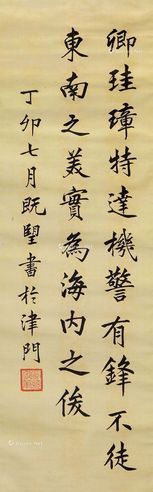 卿珪璋特達機警有鋒不徒
東南之美實為海內之俊
丁卯七月既朢書於津門